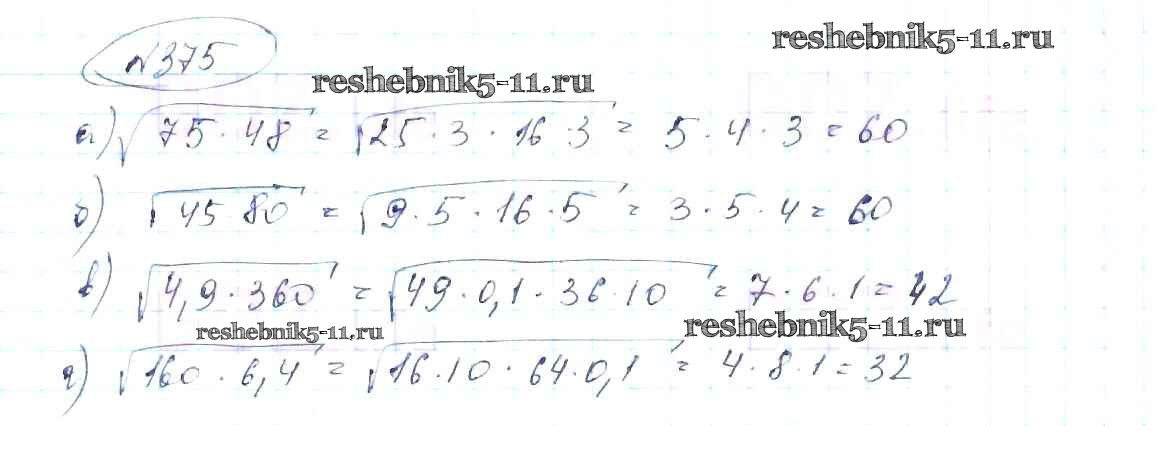 reshebnik5-11.ru
№375
reshebnik5-11.ru
а) √75·48 = √25·3·16·3 = 5·4·3 = 60
б) √45·80 = √9·5·16·5 = 3·5·4 = 60
в) √4,9·360 = √49·0,1·36·10 = 7·6·1 = 42
reshebnik5-11.ru
reshebnik5-11.ru
г) √160·6,4 = √16·10·64·0,1 = 4·8·1 = 32